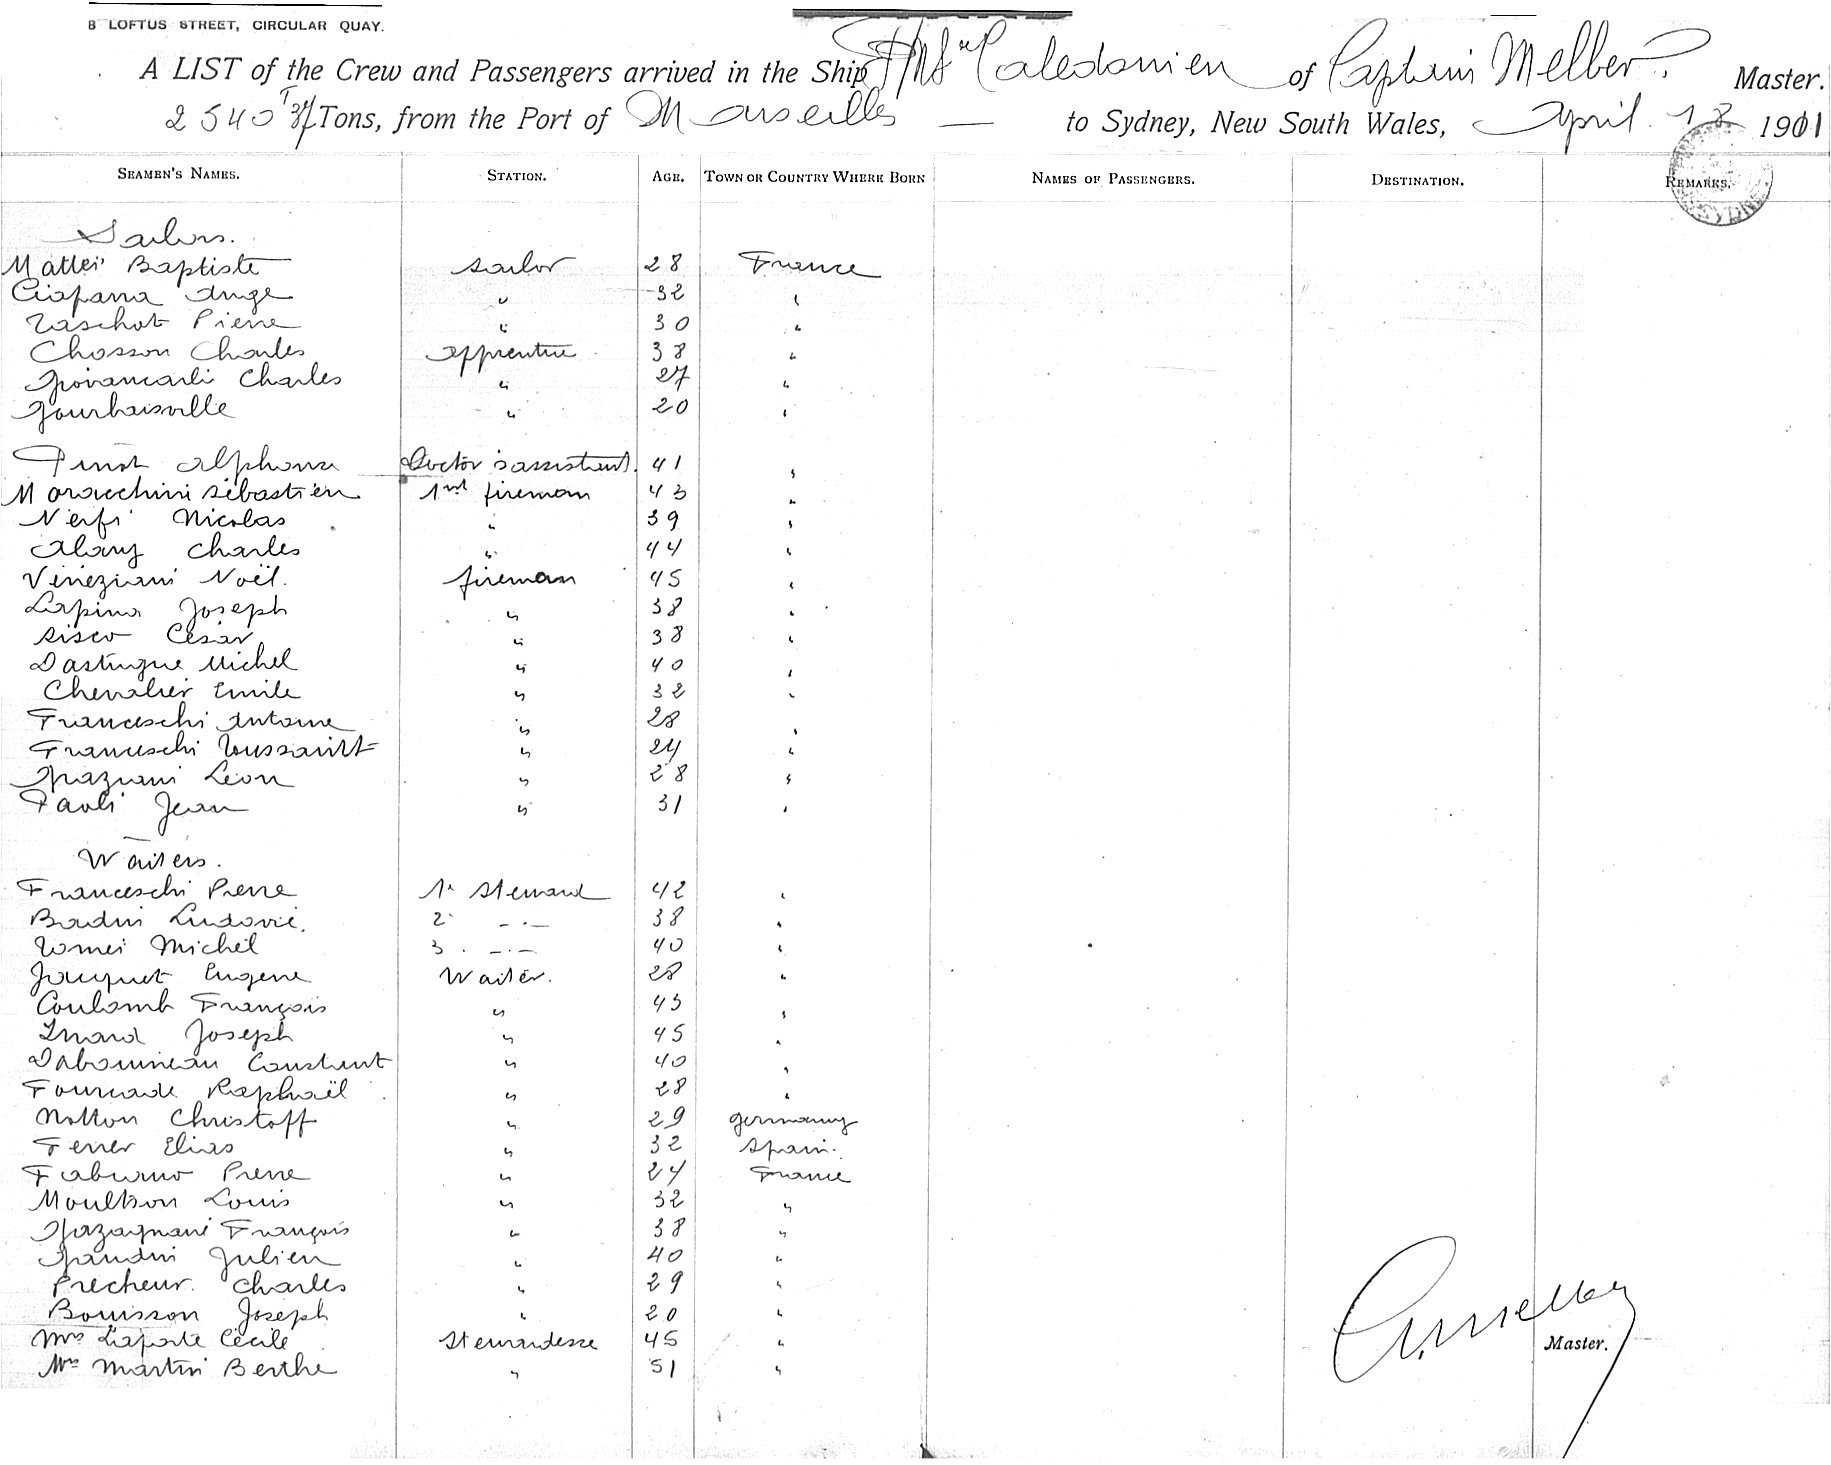 8 LOFTUS STREET, CIRCULAR QUAY.
A LIST of the Crew and Passengers arrived in the Ship Caledonien of Captain Melber Master.
2540 Tons, from the Port of Marseille — to Sydney, New South Wales, April 18 1901
SEAMEN'S NAMES. STATION. AGE. TOWN OR COUNTRY WHERE BORN NAMES OF PASSENGERS. DESTINATION. REMARKS.
Sailors.
Mattei Baptiste sailor 28 France
Ange " 32 "
Pierre " 30 "
Chosson Charles apprentice 38 "
Giovancarli Charles " 27 "
" 20 "
Pinot Alphonse Doctor's assistant. 41 "
Moracchini Sébastien 1st fireman 43 "
Nerfi Nicolas " 39 "
Alary Charles " 44 "
Véneziani Noël. fireman 45 "
Lapina Joseph " 38 "
Sisco César " 38 "
Dastugue Michel " 40 "
Chevalier Emile " 32 "
Franceschi Antoine " 28 "
Franceschi Toussaint " 24 "
Graziani Léon " 28 "
Paoli Jean " 31 "
Waiters.
Franceschi Pierre 1r Steward 42 "
Ludovic. 2 -.- 38 "
Tomei Michel 3. -.- 40 "
Jacquet Eugene Waiter. 28 "
Coulomb François " 43 "
Inard Joseph " 45 "
Dabonneau Constant " 40 "
Fourcade Raphaël " 28 "
Notton Christoff " 29 germany
Ferrer Elias " 32 Spain.
Pierre " 24 France
Moulton Louis " 32 "
Gazagnani François " 38 "
Gaudin Julien " 40 "
Precheur. Charles " 29 "
Bouisson Joseph " 20 "
Mrs Laporte Cécile Stewardesse 45 "
Mrs Martin Berthe " 51 "
Master.